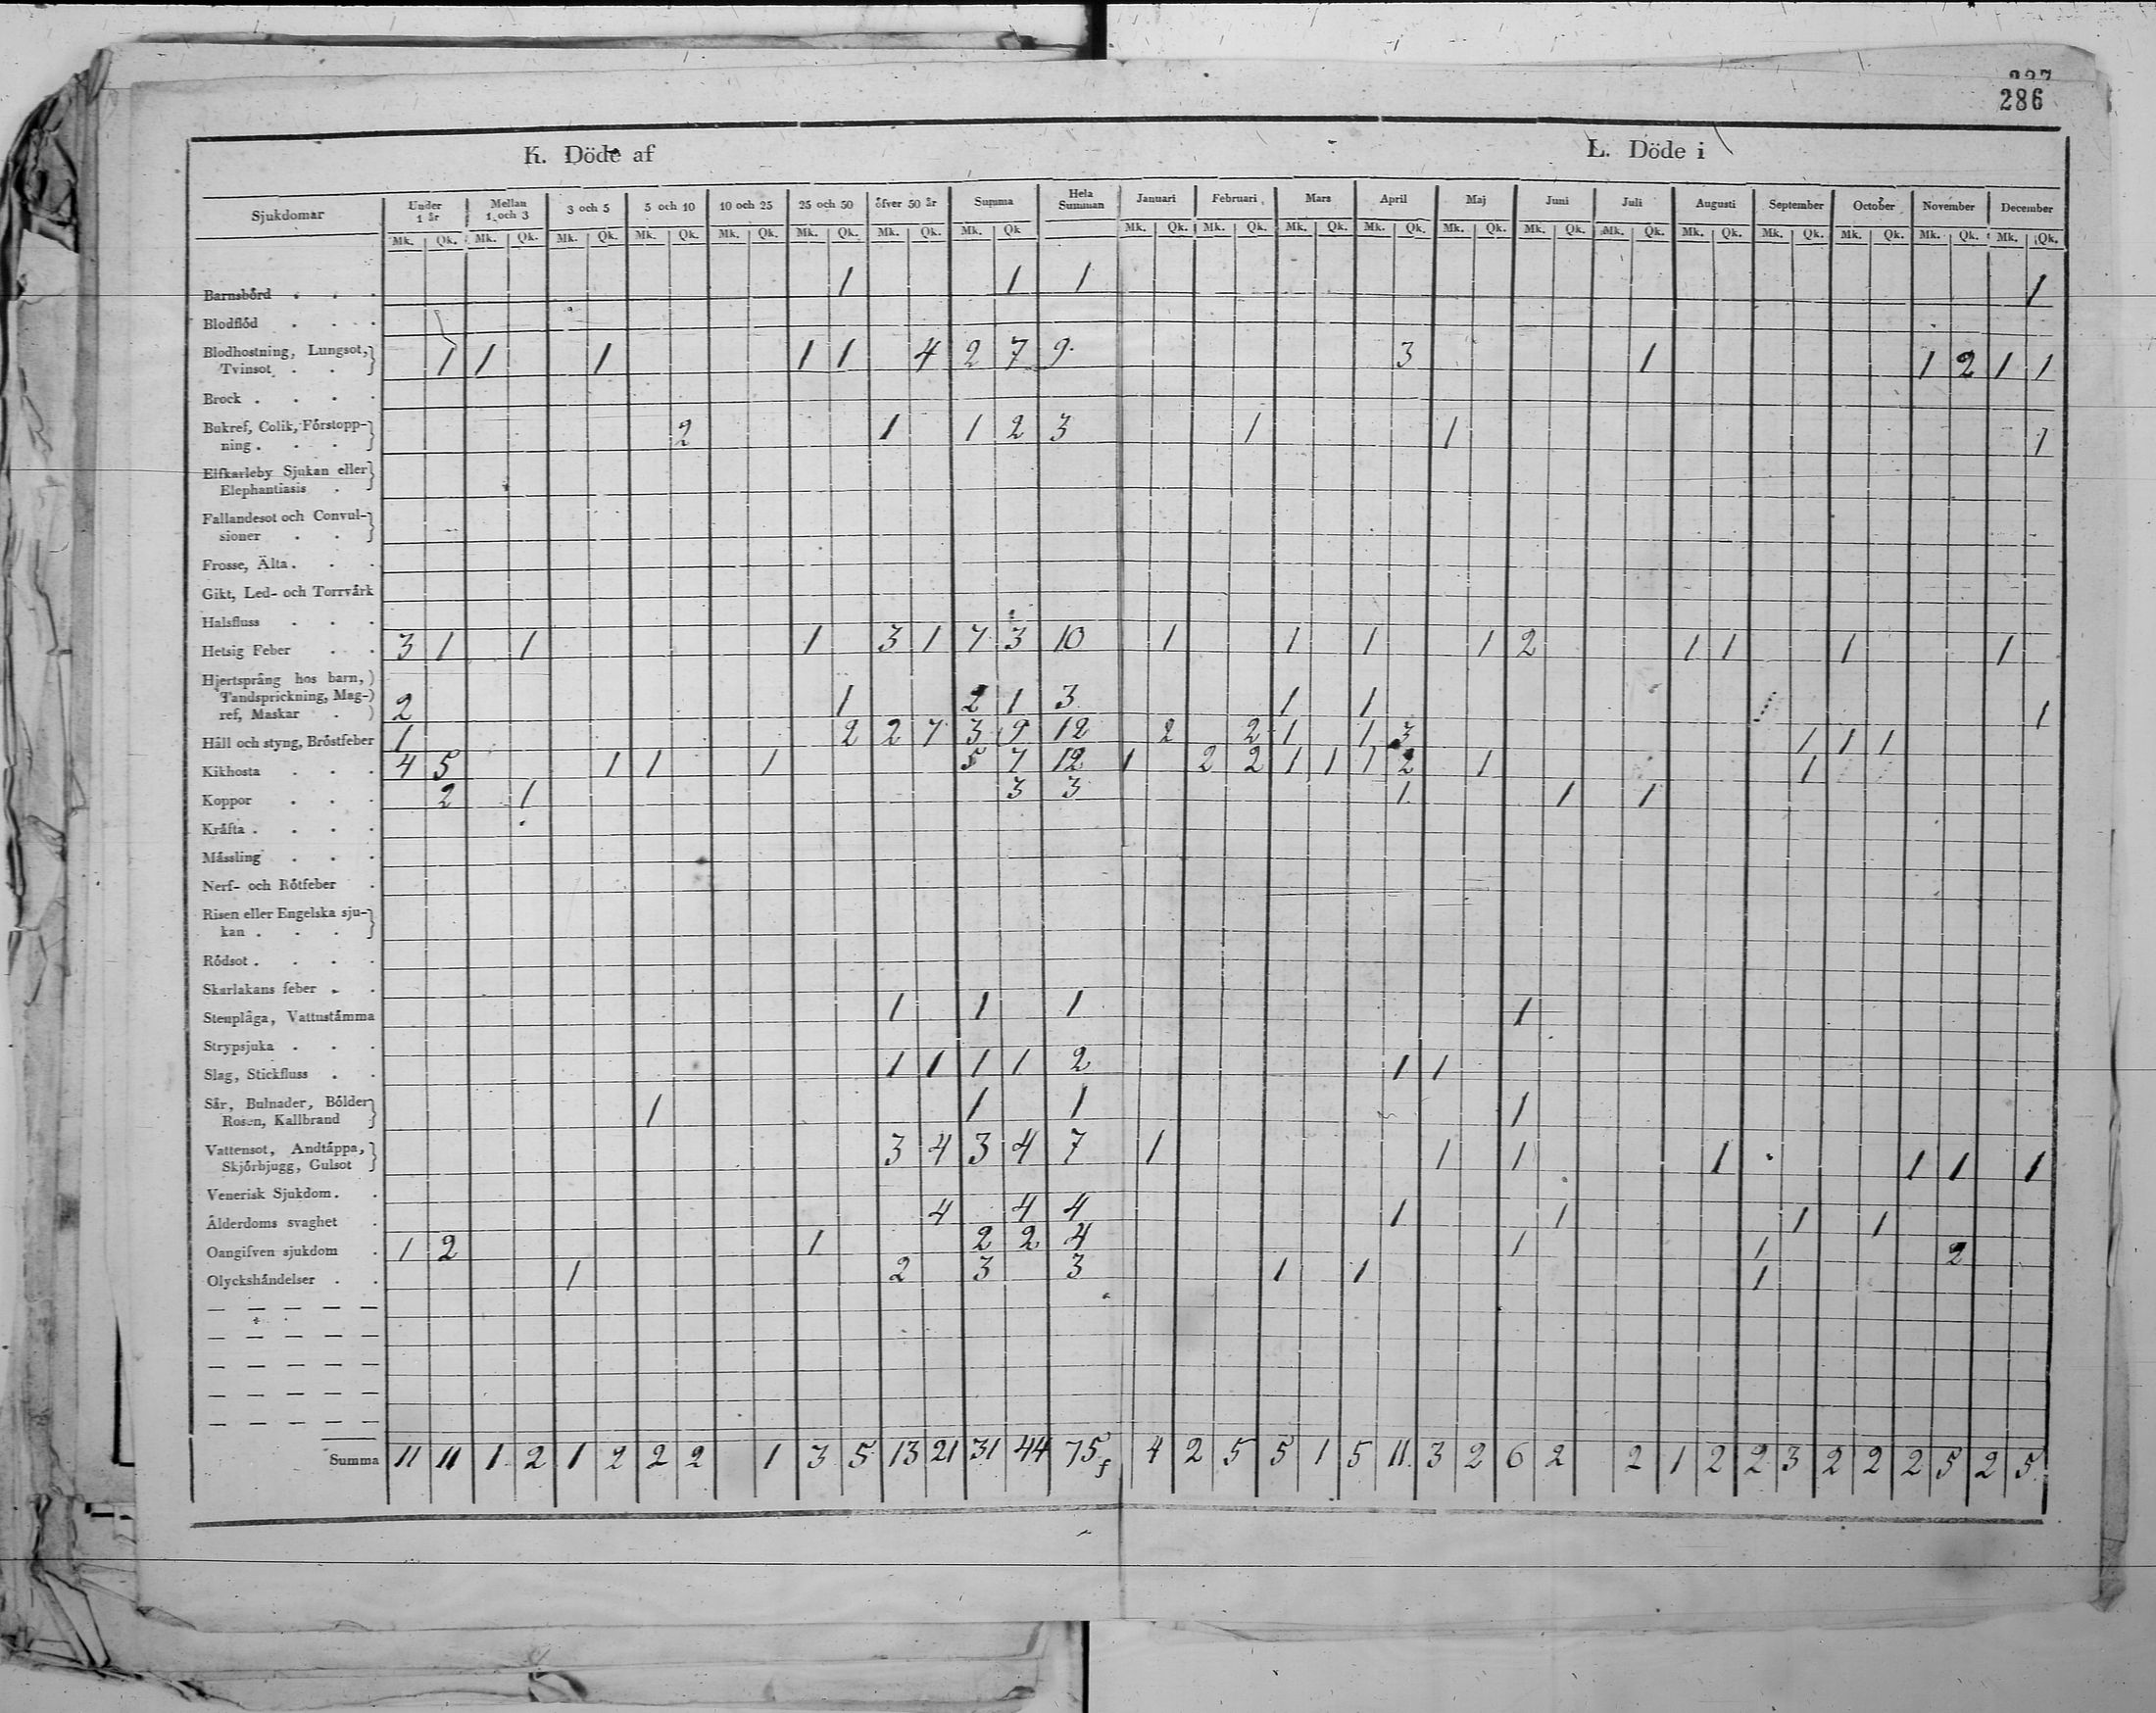 286
K. Döde af L. Döde i
Sjukdomar Under 1 år Mellan 1 och 3 3 och 5 5 och 10 10 och 25 25 och 50 öfver 50 år Summa Hela Summan Januari Februari Mars April Maj Juni Juli Augusti September October November December
Mk. Qk. Mk. Qk. Mk. Qk. Mk. Qk. Mk. Qk. Mk. Qk. Mk. Qk. Mk. Qk Mk. Qk. Mk. Qk. Mk. Qk. Mk. Qk. Mk. Qk. Mk. Qk. Mk. Qk. Mk. Qk. Mk. Qk. Mk. Qk. Mk. Qk. Mk. Qk.
Barnsbörd 1 1 1 1
Blodflöd
Blodhostning, Lungsot,
Tvinsot 1 1 1 1 1 4 2 7 9 3 1 1 2 1 1
Brock
Bukref, Colik, Förstopp-
ning 2 1 1 2 3 1 1 1
Elfkarleby Sjukan eller
Elephantiasis
Fallandesot och Convul-
sioner
Frosse, Älta
Gikt, Led- och Torrvärk
Halsfluss
Hetsig Feber 3 1 1 1 3 1 7 3 10 1 1 1 1 2 1 1 1 1
Hjertsprång hos barn,
Tandsprickning, Mag-
ref, Maskar 2 1 2 1 3 1 1 1
Håll och styng, Bröstfeber 1 2 2 7 3 9 12 2 2 1 1 3 1 1 1
Kikhosta 4 5 1 1 1 5 7 12 1 2 2 1 1 1 2 1 1
Koppor 2 1 3 3 1 1 1
Kräfta
Mässling
Nerf- och Rötfeber
Risen eller Engelska sju-
kan
Rödsot
Skarlakans feber
Stenplåga, Vattustämma 1 1 1 1
Strypsjuka
Slag, Stickfluss 1 1 1 1 2 1 1
Sår, Bulnader, Bölder
Rosen, Kallbrand 1 1 1 1
Vattensot, Andtäppa,
Skjörbjugg, Gulsot 3 4 3 4 7 1 1 1 1 1 1 1
Venerisk Sjukdom
Ålderdoms svaghet 4 4 4 1 1 1 1
Oangifven sjukdom 1 2 1 2 2 4 1 1 2
Olyckshändelser 1 2 3 3 1 1 1
Summa 11 11 1 2 1 2 2 2 1 3 5 13 21 31 44 75 4 2 5 5 1 5 11 3 2 6 2 2 1 2 2 3 2 2 2 5 2 5